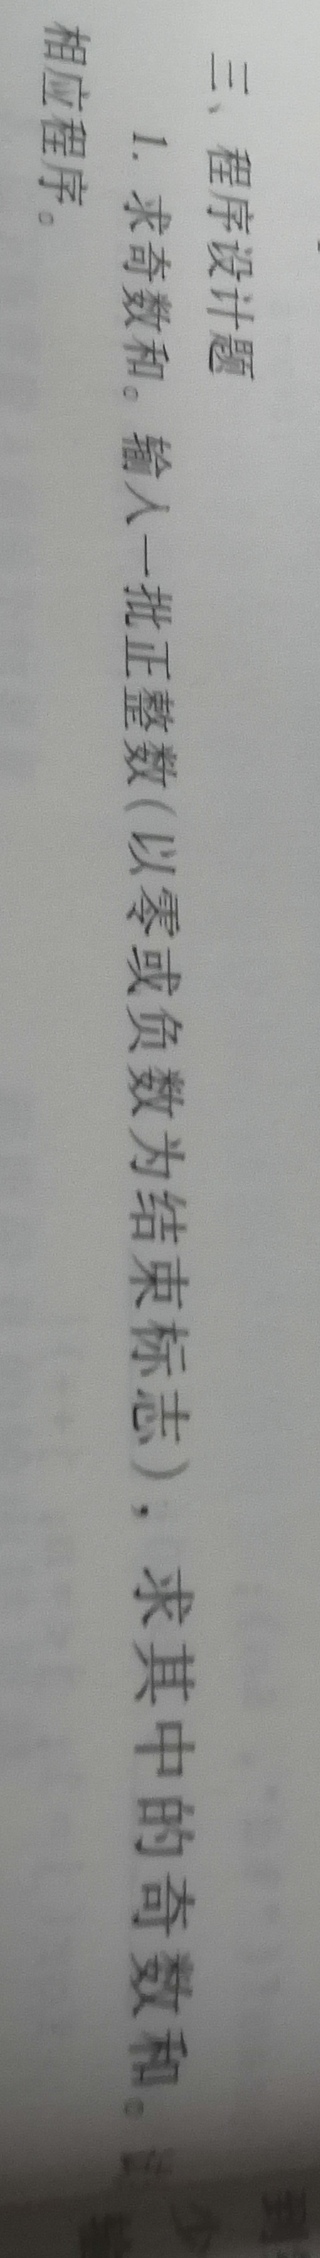 三、程序设计题
1. 求奇数和。输入一批正整数(以零或负数为结束标志)，求其中的奇数和。试
相应程序。